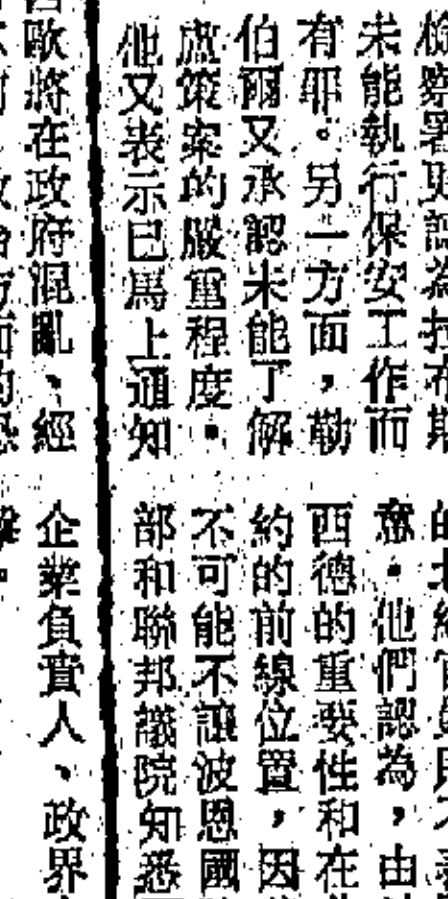 察署更認為拉布斯
未能執行保安工作而
有罪。另一方面，勒
伯爾又承認未能了解
盧策案的嚴重程度。
他又表示已馬上通知
意。他們認為，由
西德的重要性和在
約的前線位置，因
不可能不讓波恩國
部和聯邦議院知悉
歐將在政府混亂、經
企業負責人、政界